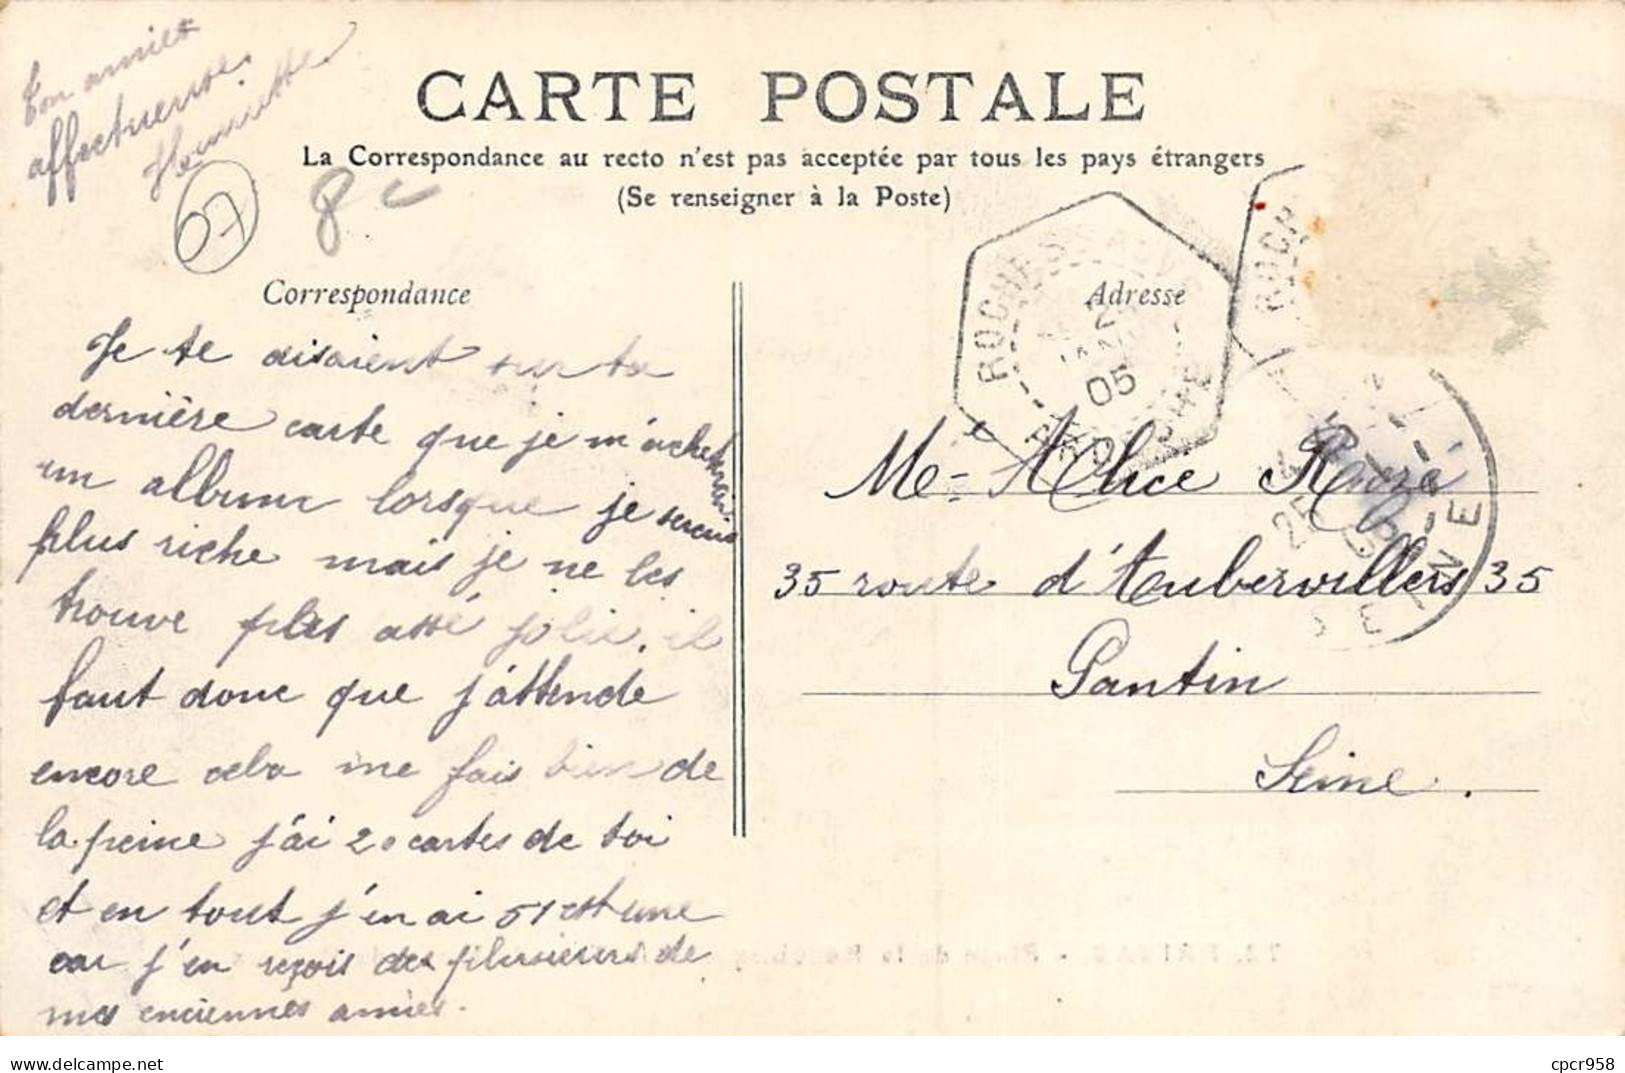 Ton amiee
affectueuse.
Henriette
07
8
CARTE POSTALE
La Correspondance au recto n'est pas acceptée par tous les pays étrangers
(Se renseigner à la Poste)
Correspondance
Adresse
Je te disaient sur ta
dernière carte que je m'acheterais
un album lorsque je serais
plus riche mais je ne les
trouve plus assé jolie. il
faut donc que j'attende
encore cela me fais bien de
la peine j'ai 20 cartes de toi
et en tout j'en ai 51 et une
car j'en reçois des plusieurs de
mes enciennes amies.
ROCHESSAUVE
2
JANV
05
ARDECHE
ROCH
25
05
SEINE
Me= Alice
35 route d'Aubervillers 35
Pantin
Seine.
delcampe.net
cpcr958